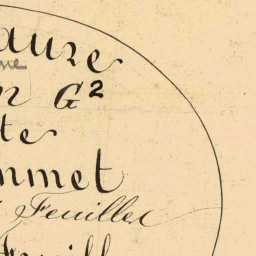 auze
ne
n G²
te
mmet
Feuilles